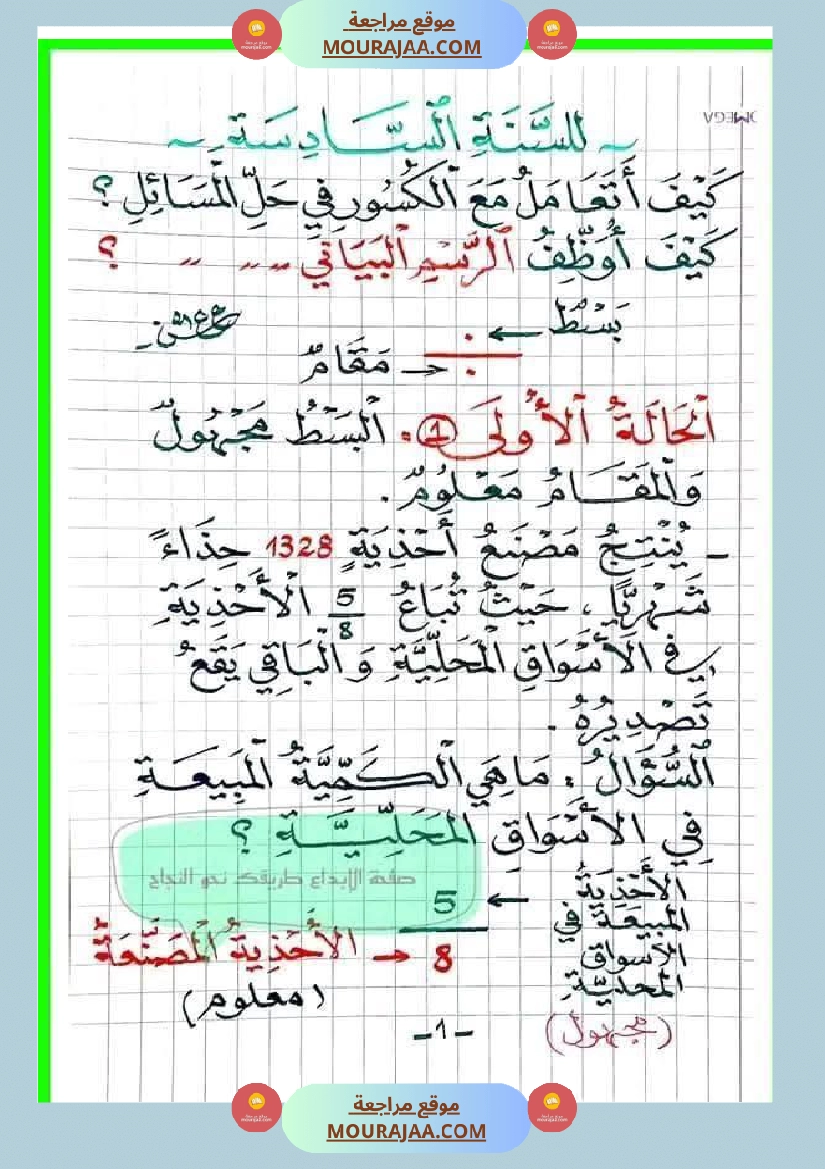 موقع مراجعة
MOURAJAA.COM
OMEGA
~ للسَّنَةِ ٱلسَّادِسَةِ ~
كَيْفَ أَتَعَامَلُ مَعَ ٱلْكُسُورِ فِي حَلِّ ٱلْمَسَائِلِ ؟
كَيْفَ أُوَظِّفُ ٱلرَّسْمَ ٱلْبَيَانِيَّ -- -- " " ؟
بَسْطٌ ←
→ مَقَامٌ
ٱلْحَالَةُ ٱلْأُولَى 1 . ٱلْبَسْطُ مَجْهُولٌ
وَٱلْمَقَامُ مَعْلُومٌ .
- يُنْتِجُ مَصْنَعُ أَحْذِيَةٍ 1328 حِذَاءً
شَهْرِيًّا ، حَيْثُ تُبَاعُ 5/8 ٱلْأَحْذِيَةِ
فِي ٱلْأَسْوَاقِ ٱلْمَحَلِّيَّةِ وَ ٱلْبَاقِي يَقَعُ
تَصْدِيرُهُ .
ٱلسُّؤَالُ : مَا هِيَ ٱلْكَمِّيَّةُ ٱلْمَبِيعَةِ
فِي ٱلْأَسْوَاقِ ٱلْمَحَلِّيَّةِ ؟
صفحة الإبداع طريقك نحو النجاح
الأَحْذِيَةُ
المبيعَةُ في
الأسواق
المحليّةِ
(مجهول)
← 5
8 → الأَحْذِيَةُ الْمُصَنَّعَةُ
(معلوم)
-1-
موقع مراجعة
MOURAJAA.COM